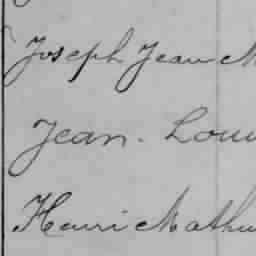 Joseph Jean M
Jean. Loui
Henri Mathu